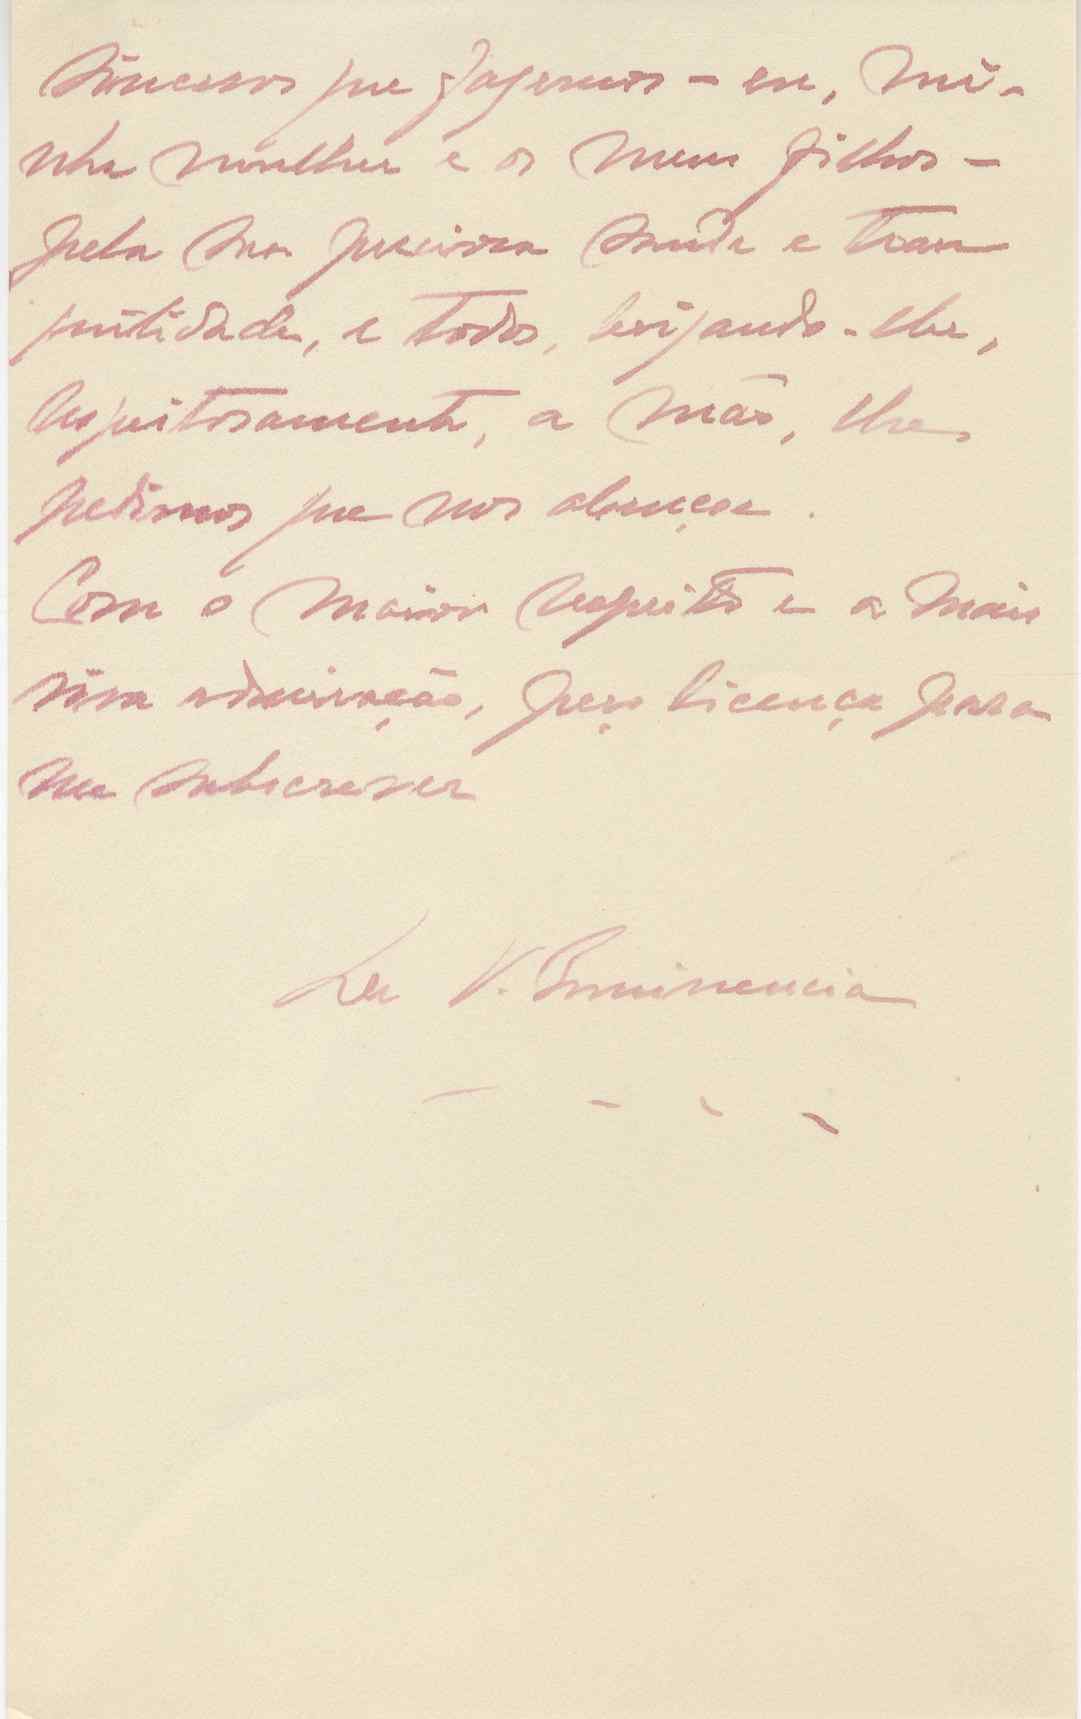 sinceros que fazemos – eu, mi-
nha mulher e os meus filhos –
pela sua preciosa saúde e tran
quilidade, e todos, beijando-lhe,
respeitosamente, a mão, lhe
pedimos que nos abençoe.
Com o maior respeito e a mais
viva admiração, peço licença para
me subscrever
De V. Eminencia